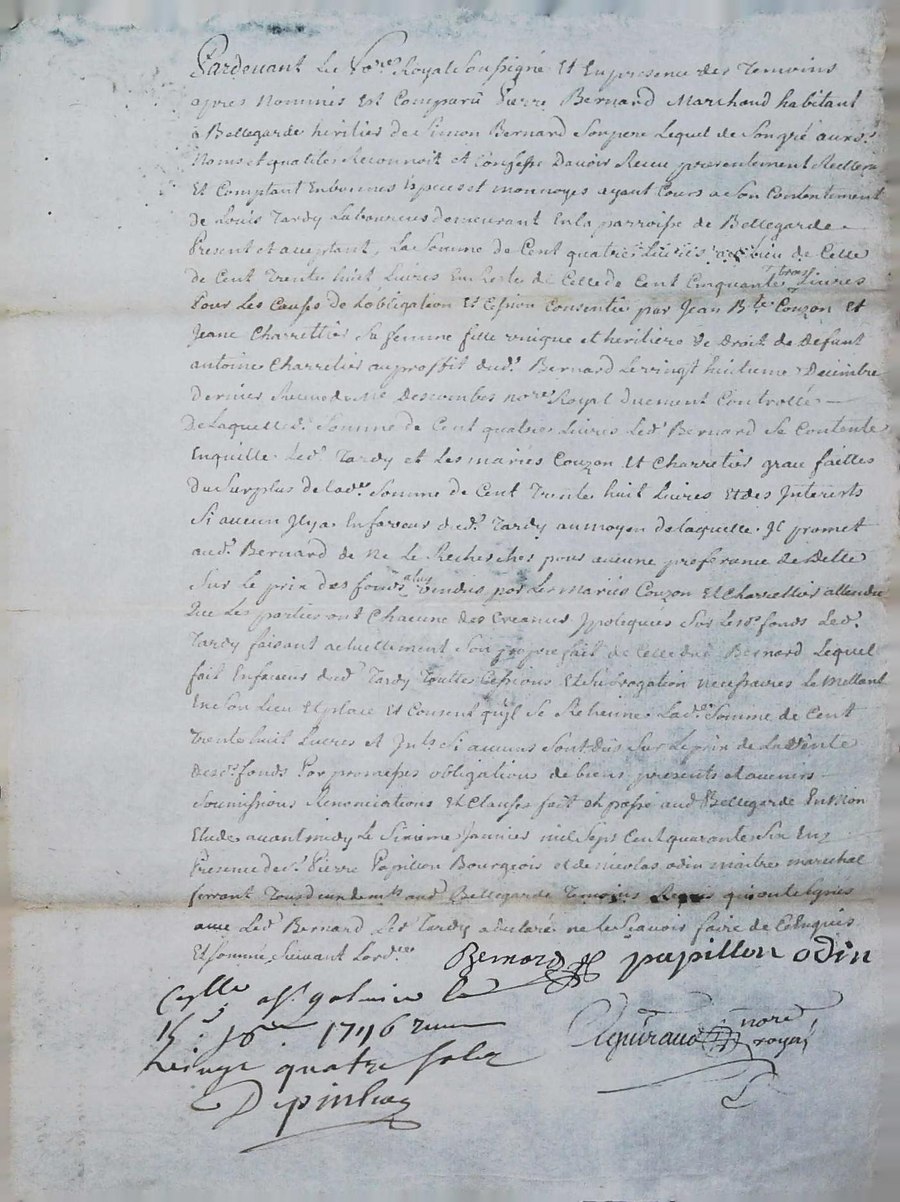 Pardevant Le No.re Royal Soussigné Et En presence des Temoins
apres Nommés Est Comparu Pierre Bernard Marchand habitant
a Bellegarde heritier de Simon Bernard Son pere Lequel de Son gré auxd.
Noms et qualites Reconnoit et Confesse Davoir Receu presentement Reellem
Et Comptant En bonnes Especes et monnoyes ayant Cours a Son Contentement
de Louis Tardy Laboureur demeurant En la parroisse de Bellegarde
Present et aceptant, La Somme de Cent quatre Livres au lieu de Celle
de Cent Trente huit Livres En Reste de Celle de Cent Cinquante trois Livres
Pour Les Causes de Lobligation Et Cession Consentie par Jean B.te Couzon Et
Jeane Charrettier Sa femme fille unique et heritiere de Droit de Defunt
antoine Charretier au proffit dud. Bernard Le vingt huitieme Decembre
dernier Receue de Me Descombes no.re Royal Duement Controllé
De Laquelle d. Somme de Cent quatre Livres Led. Bernard Se Contente
En quitte Led. Tardy et Les mariés Couzon Et Charretier
du Surplus de lad. Somme de Cent Trente huit Livres Et des Interets
Si aucun Il y a En faveur dud. Tardy au moyen de laquelle Il promet
aud. Bernard de Ne Le Rechercher pour aucune preferance de Delle
Sur Le prix des fonds a luy vendus par Les Mariés Couzon Et Charrettier attendu
Que Les parties ont Chacune des Creances Ipoteques Sur Lesd. fonds Led.
Tardy faisant actuellement Son propre fait de Celle dud. Bernard Lequel
fait En faveur dud. Tardy Touttes Cessions Et Subrogation necessaires Le Mettant
En Son Lieu Et place Et Consent quil Se Retienne Lad. Somme de Cent
Trente huit Livres et Ints Si aucuns Sont dus Sur Le prix de La Vente
Desd. fonds Par promesses obligations de biens presents et avenir
Soumissions Renonciations Et Clauses fait et passé aud. Bellegarde En
Etude avant midy Le Sixieme Janvier mil Sept Cent quarante Six En
Presence de S. Pierre Papillon Bourgeois et de nicolas odin maitre marechal
ferrant Tous deux dem.ts aud. Bellegarde Temoins Requis qui ont Signés
avec Led. Bernard Led. Tardy a declaré ne le Scavoir faire de Ce Enquis
Et Sommé Suivant Lord.ce
Bernard papillon odin
Cyllé a S. galmier le
15 1746 recu
vingt quatre sols
nore
royal
Depinhac